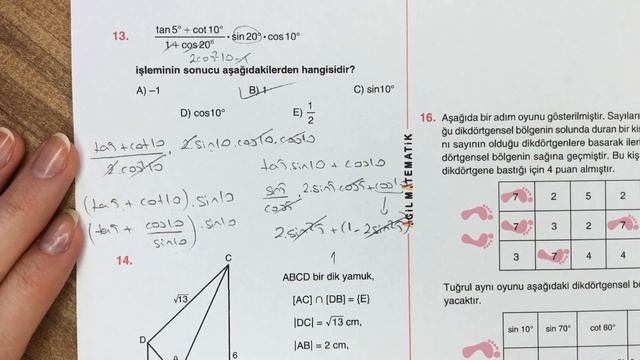 13. tan5° + cot10°
1+ cos20° · sin20° · cos10°
2cos²10-1
işleminin sonucu aşağıdakilerden hangisidir?
A) –1 B) 1 C) sin10°
D) cos10° E) 1/2
tan5+cot10 / 2cos²10 · 2sin10.cos10.cos10
(tan5 + cot10).sin10
(tan5 + cos10/sin10).sin10
tan5.sin10 + cos10
sin5/cos5 2.sin5 cos5+cos10
2.sin²5 + (1-2sin²5)
1
14.
C
√13
D
6
ABCD bir dik yamuk,
[AC] ∩ [DB] = {E}
|DC| = √13 cm,
|AB| = 2 cm,
MATEMATİK
16. Aşağıda bir adım oyunu gösterilmiştir. Sayıları
ğu dikdörtgensel bölgenin solunda duran bir
nı sayının olduğu dikdörtgenlere basarak
dörtgensel bölgenin sağına geçmiştir. Bu
dikdörtgene bastığı için 4 puan almıştır.
7 2 5 2
7 3 2 7
3 7 4 4
Tuğrul aynı oyunu aşağıdaki dikdörtgensel
yacaktır.
sin 10° sin 70° cot 60°